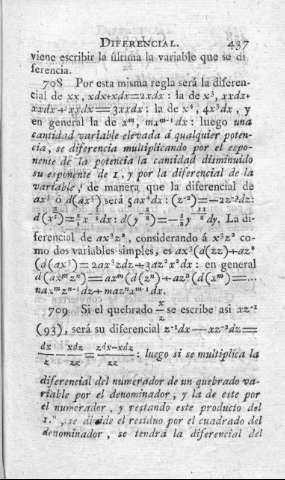 DIFERENCIAL. 437
viene escribir la última la variable que se di
ferencia.
708 Por esta misma regla será la diferen-
cial de xx, xdx+xdx=2xdx: la de x³, xxdx+
xxdx+xxdx=3xxdx: la de x⁴, 4x³dx, y
en general la de xᵐ, mxᵐ⁻¹dx: luego una
cantidad variable elevada á qualquier poten-
cia, se diferencia multiplicando por el expo-
nente de la potencia la cantidad disminuido
su exponente de 1, y por la diferencial de la
variable, de manera que la diferencial de
ax⁵ ó d(ax⁵) será 5ax⁴dx: (z⁻²)=-2z⁻³dz:
dx: d(y dy. La di-
ferencial de ax³z², considerando á x³z² co-
mo dos variables simples, es ax³(d(zz)+az²
(d(ax³)=2ax³zdz+3az²x²dx: en general
d(axᵐzⁿ)=axᵐ(d(zⁿ)+azⁿ(d(xᵐ)=...
naxᵐzⁿ⁻¹dz+mazⁿxᵐ⁻¹dx.
709 Si el quebrado x/z se escribe así xz⁻¹
(93), será su diferencial z⁻¹dx-xz⁻²dz=
dx/z - xdz/zz = zdx-xdz/zz: luego si se multiplica la
diferencial del numerador de un quebrado va-
riable por el denominador, y la de este por
el numerador, y restando este producto del
1.º, se divide el residuo por el cuadrado del
denominador, se tendrá la diferencial del